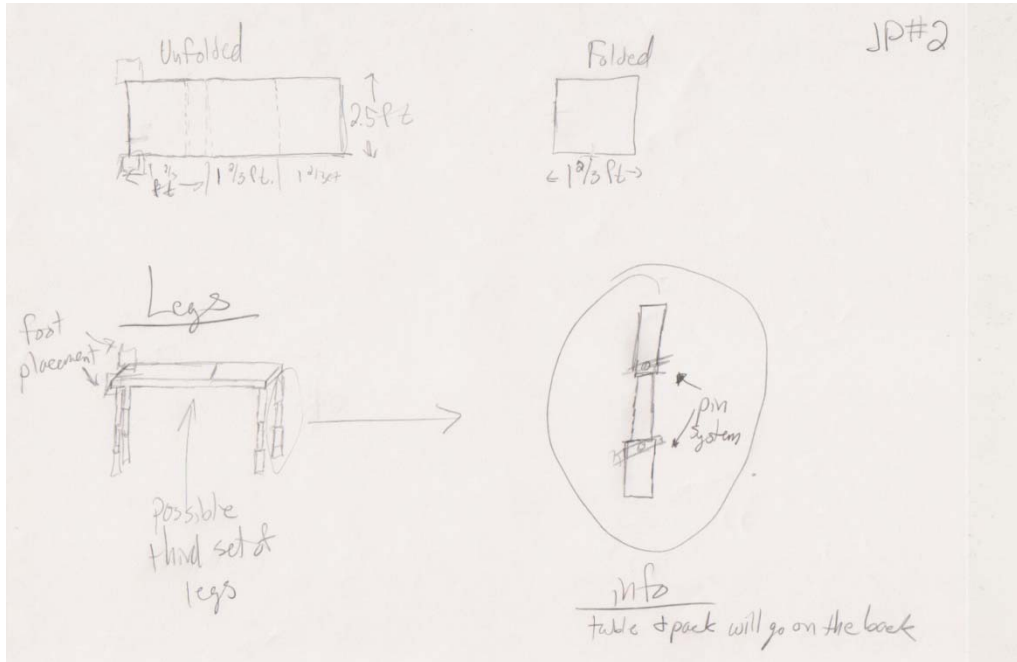 JP#2
Unfolded
2.5 ft
1 2/3
ft
1 2/3 ft.
Folded
1 2/3 ft
Legs
foot
placement
possible
third set of
legs
pin
system
info
table & pack will go on the back